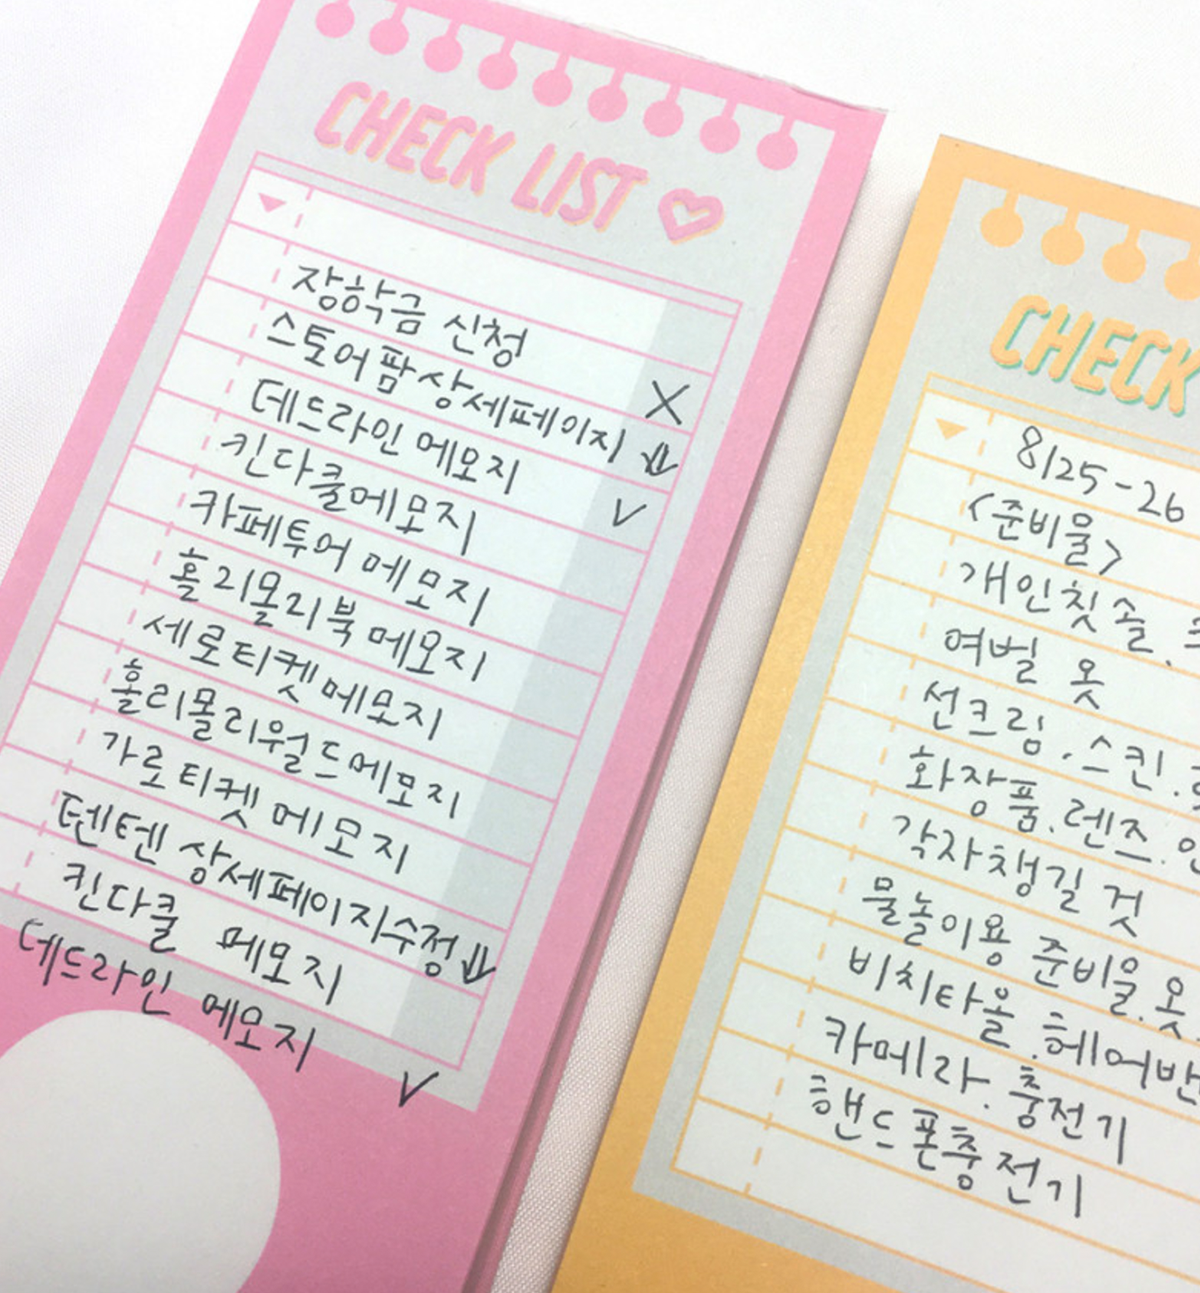 CHECK LIST
장학금 신청
스토어팜상세페이지
데드라인 메모지
킨다쿨메모지
카페투어 메모지
홀리몰리북메모지
세로티켓메모지
홀리몰리월드메모지
가로티켓 메모지
텐텐 상세페이지수정
킨다쿨 메모지
데드라인 메모지
CHECK
8/25-26
<준비물>
개인칫솔.
여벌 옷
선크림.스킨.
화장품.렌즈.
각자챙길 것
물놀이용 준비물.옷
비치타올.헤어밴
카메라.충전기
핸드폰충전기